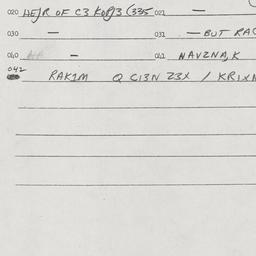 020 HEJR OF C3 KOPJ3 (335 021 —
030 — 031 — BUT RAC
040 — 041 NAVZNA, K
042 RAKIM Q CI3N Z3X / KRIXN